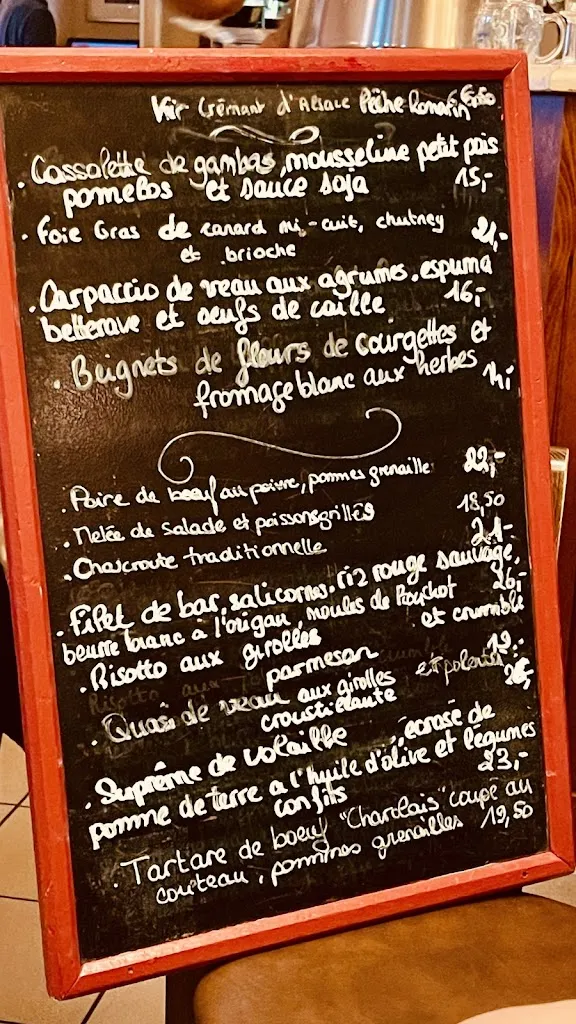 Kir Crémant d'Alsace Pêche Romarin 6,50
. Cassolette de gambas, mousseline petit pois
pomelos et sauce soja 15,-
. Foie Gras de canard mi-cuit, chutney 21,-
et brioche
. Carpaccio de veau aux agrumes, espuma
betterave et oeufs de caille 16,-
. Beignets de fleurs de courgettes et
fromage blanc aux herbes 14,-
. Poire de boeuf au poivre, pommes grenaille 22,-
. Melée de salade et poissons grillés 18,50
. Choucroute traditionnelle 21-
. Filet de bar, salicornes, riz rouge sauvage,
beurre blanc à l'origan, moules de Bouchot 26,-
. Risotto aux girolles et crumble
parmesan 19.-
. Quasi de veau aux girolles et polenta
croustillante
. Suprême de volaille, écrasé de
pomme de terre a l'huile d'olive et légumes
confits 23,-
. Tartare de boeuf "Charolais" coupé au
couteau, pommes grenailles 19,50